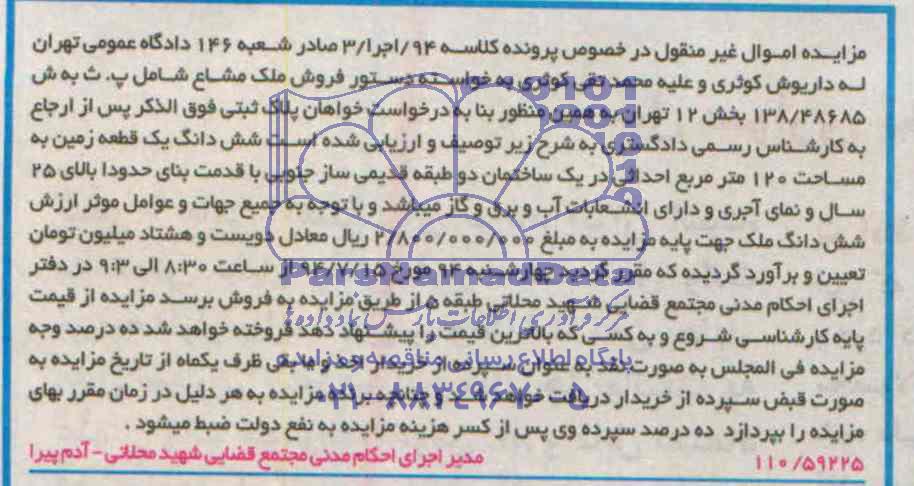 مزایده اموال غیر منقول در خصوص پرونده کلاسه ۹۴/اجرا/۳ صادر شعبه ۱۴۶ دادگاه عمومی تهران
له داریوش کوثری و علیه محمد تقی کوثری به خواسته دستور فروش ملک مشاع شامل پ. ث به ش
۱۳۸/۴۸۶۸۵ بخش ۱۲ تهران به همین منظور بنا به درخواست خواهان پلاک ثبتی فوق الذکر پس از ارجاع
به کارشناس رسمی دادگستری به شرح زیر توصیف و ارزیابی شده است شش دانگ یک قطعه زمین به
مساحت ۱۲۰ متر مربع احداثی در یک ساختمان دو طبقه قدیمی ساز جنوبی با قدمت بنای حدودا بالای ۲۵
سال و نمای آجری و دارای انشعابات آب و برق و گاز میباشد و با توجه به جمیع جهات و عوامل موثر ارزش
شش دانگ ملک جهت پایه مزایده به مبلغ ۲/۸۰۰/۰۰۰/۰۰۰ ریال معادل دویست و هشتاد میلیون تومان
تعیین و برآورد گردیده که مقرر گردید چهارشنبه ۹۴ مورخ ۹۴/۷/۱۵ از ساعت ۸:۳۰ الی ۹:۳ در دفتر
اجرای احکام مدنی مجتمع قضایی شهید محلاتی طبقه ۵ از طریق مزایده به فروش برسد مزایده از قیمت
پایه کارشناسی شروع و به کسی که بالاترین قیمت را پیشنهاد دهد فروخته خواهد شد ده درصد وجه
مزایده فی المجلس به صورت نقد به عنوان سپرده از خریدار اخذ و مابقی ظرف یکماه از تاریخ مزایده به
صورت قبض سپرده از خریدار دریافت خواهد شد و چنانچه برنده مزایده به هر دلیل در زمان مقرر بهای
مزایده را بپردازد ده درصد سپرده وی پس از کسر هزینه مزایده به نفع دولت ضبط میشود .
مدیر اجرای احکام مدنی مجتمع قضایی شهید محلاتی - آدم پیرا
۱۱۰/۵۹۲۲۵
ParsNamadData
مرکز فرآوری اطلاعات پارس نماد داده ها
پایگاه اطلاع رسانی مناقصه و مزایده
۰۲۱-۸۸۳۴۹۶۷۰-۵